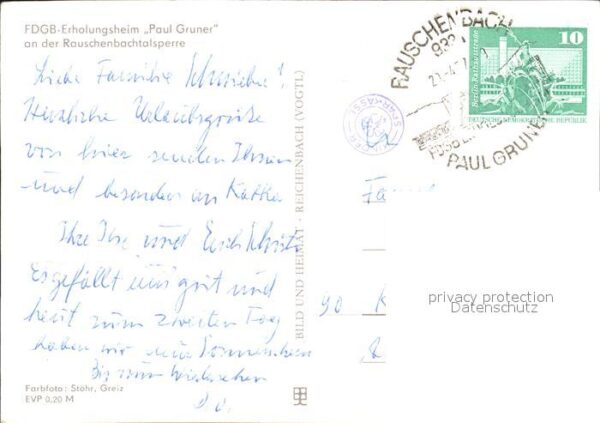 FDGB-Erholungsheim „Paul Gruner“
an der Rauschenbachtalsperre
Liebe Familie
Herzliche Urlaubsgrüße
von hier senden Ihnen
und besonders an Käthe
Ihre Ilse und Erich
Es gefällt uns gut und
heut zum zweiten Tag
haben wir nun Sonnenschein
Bis zum Wiedersehen
d. O.
Farbfoto: Stöhr, Greiz
EVP 0,20 M
BILD UND HEIMAT · REICHENBACH (VOGTL)
RAUSCHENBACH
PAUL GRUNER
10
DEUTSCHE DEMOKRATISCHE REPUBLIK
Fam
90 K
privacy protection
Datenschutz